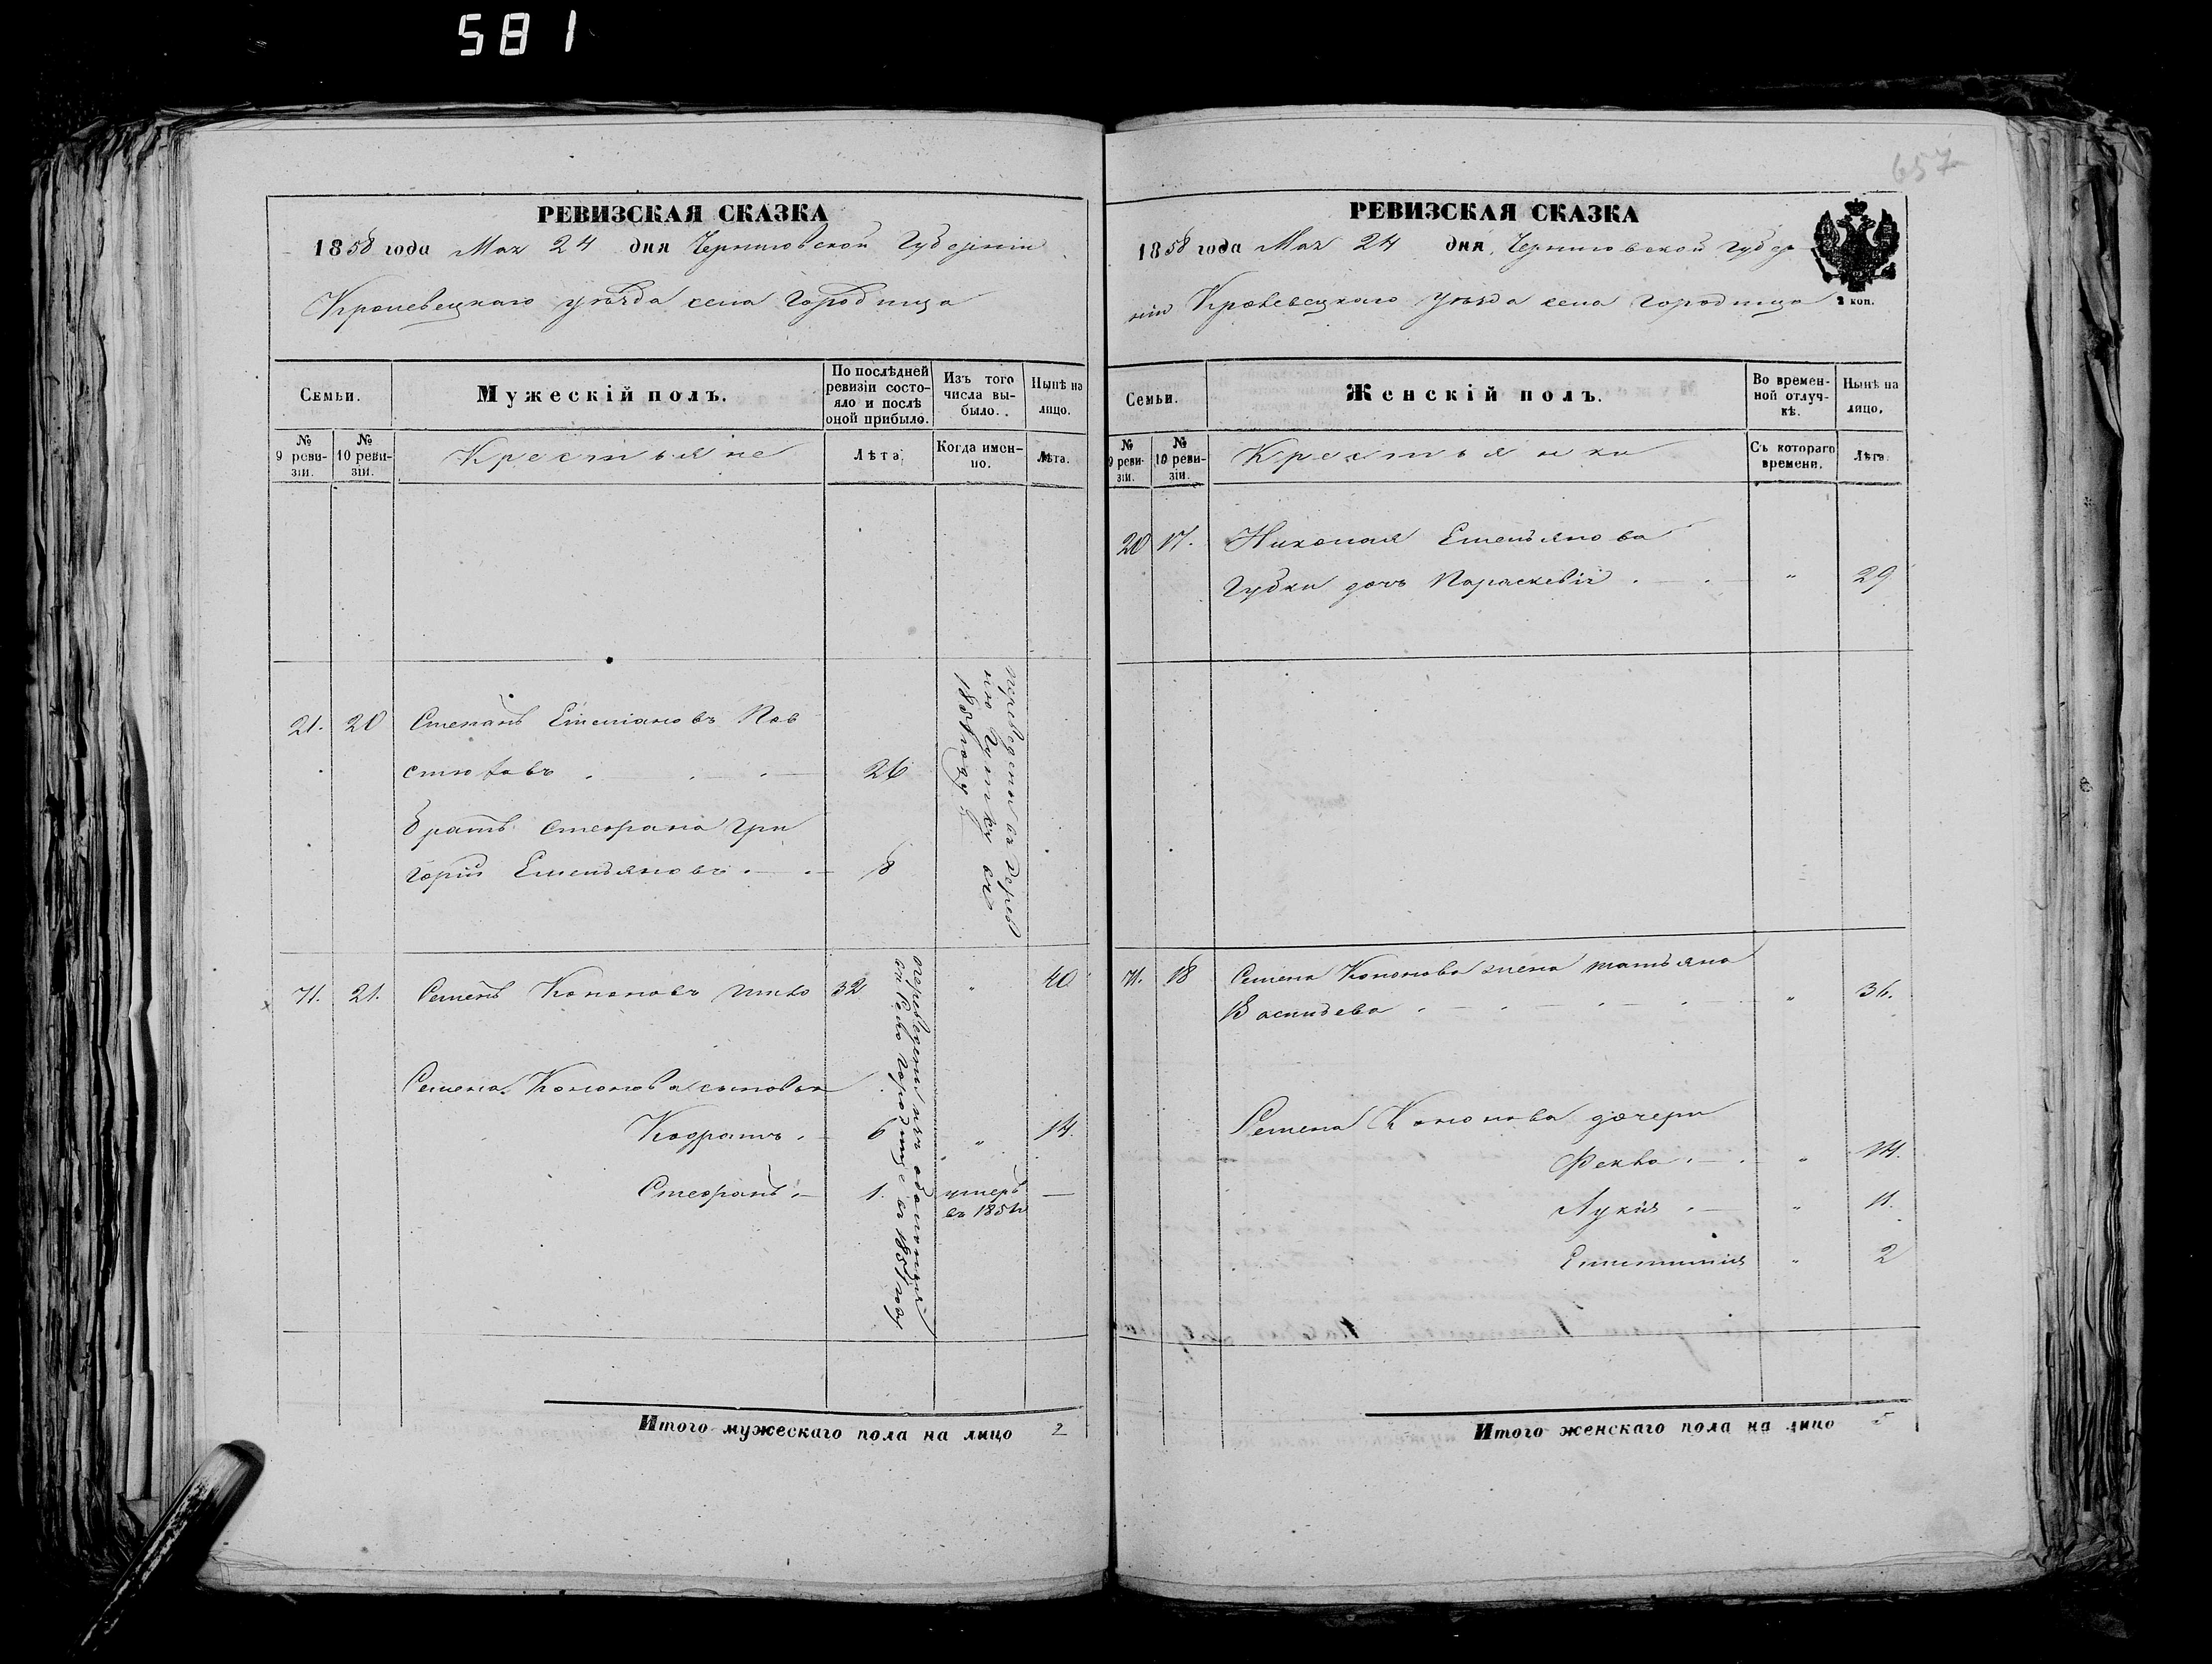 581
657
РЕВИЗСКАЯ СКАЗКА
1858 года Мая 24 дня Черниговской Губерніи
Кролевецкаго уѣзда села Городища
Семьи.
Мужескій полъ.
По послѣдней ревизіи состояло и послѣ оной прибыло.
Изъ того числа выбыло.
Нынѣ на лицо.
№ 9 ревизіи.
№ 10 ревизіи.
Крестьяне
Лѣта.
Когда именно.
Лѣта.
21. 20 Степанъ Емельяновъ
26
братъ Стефана Гри
горій Емельяновъ 8
переведены въ дерев
ню въ
1851 году
71. 21. Семенъ Кононовъ 32 " 40
Семена Кононова сыновья
Кодратъ 6 " 14.
Стефанъ 1. умеръ —
въ 1854
переведены изъ
въ село Городище въ 1851 году
Итого мужескаго пола на лицо 2
РЕВИЗСКАЯ СКАЗКА
1858 года Мая 24 дня Черниговской губер
ніи Кролевецкаго уѣзда села Городища
2 коп.
Семьи.
Женскій полъ.
Во временной отлучкѣ.
Нынѣ на лицо.
№ 9 ревизіи.
№ 10 ревизіи.
Крестьянки
Съ котораго времени.
Лѣта.
20 17. Николая Емельянова
Губки дочь Параскевія " 29
71. 18 Семена Кононова жена Татьяна
Васильева " 36.
Семена Кононова дочери
Фекла " 14.
Лукія " 11.
" 2
Итого женскаго пола на лицо 5